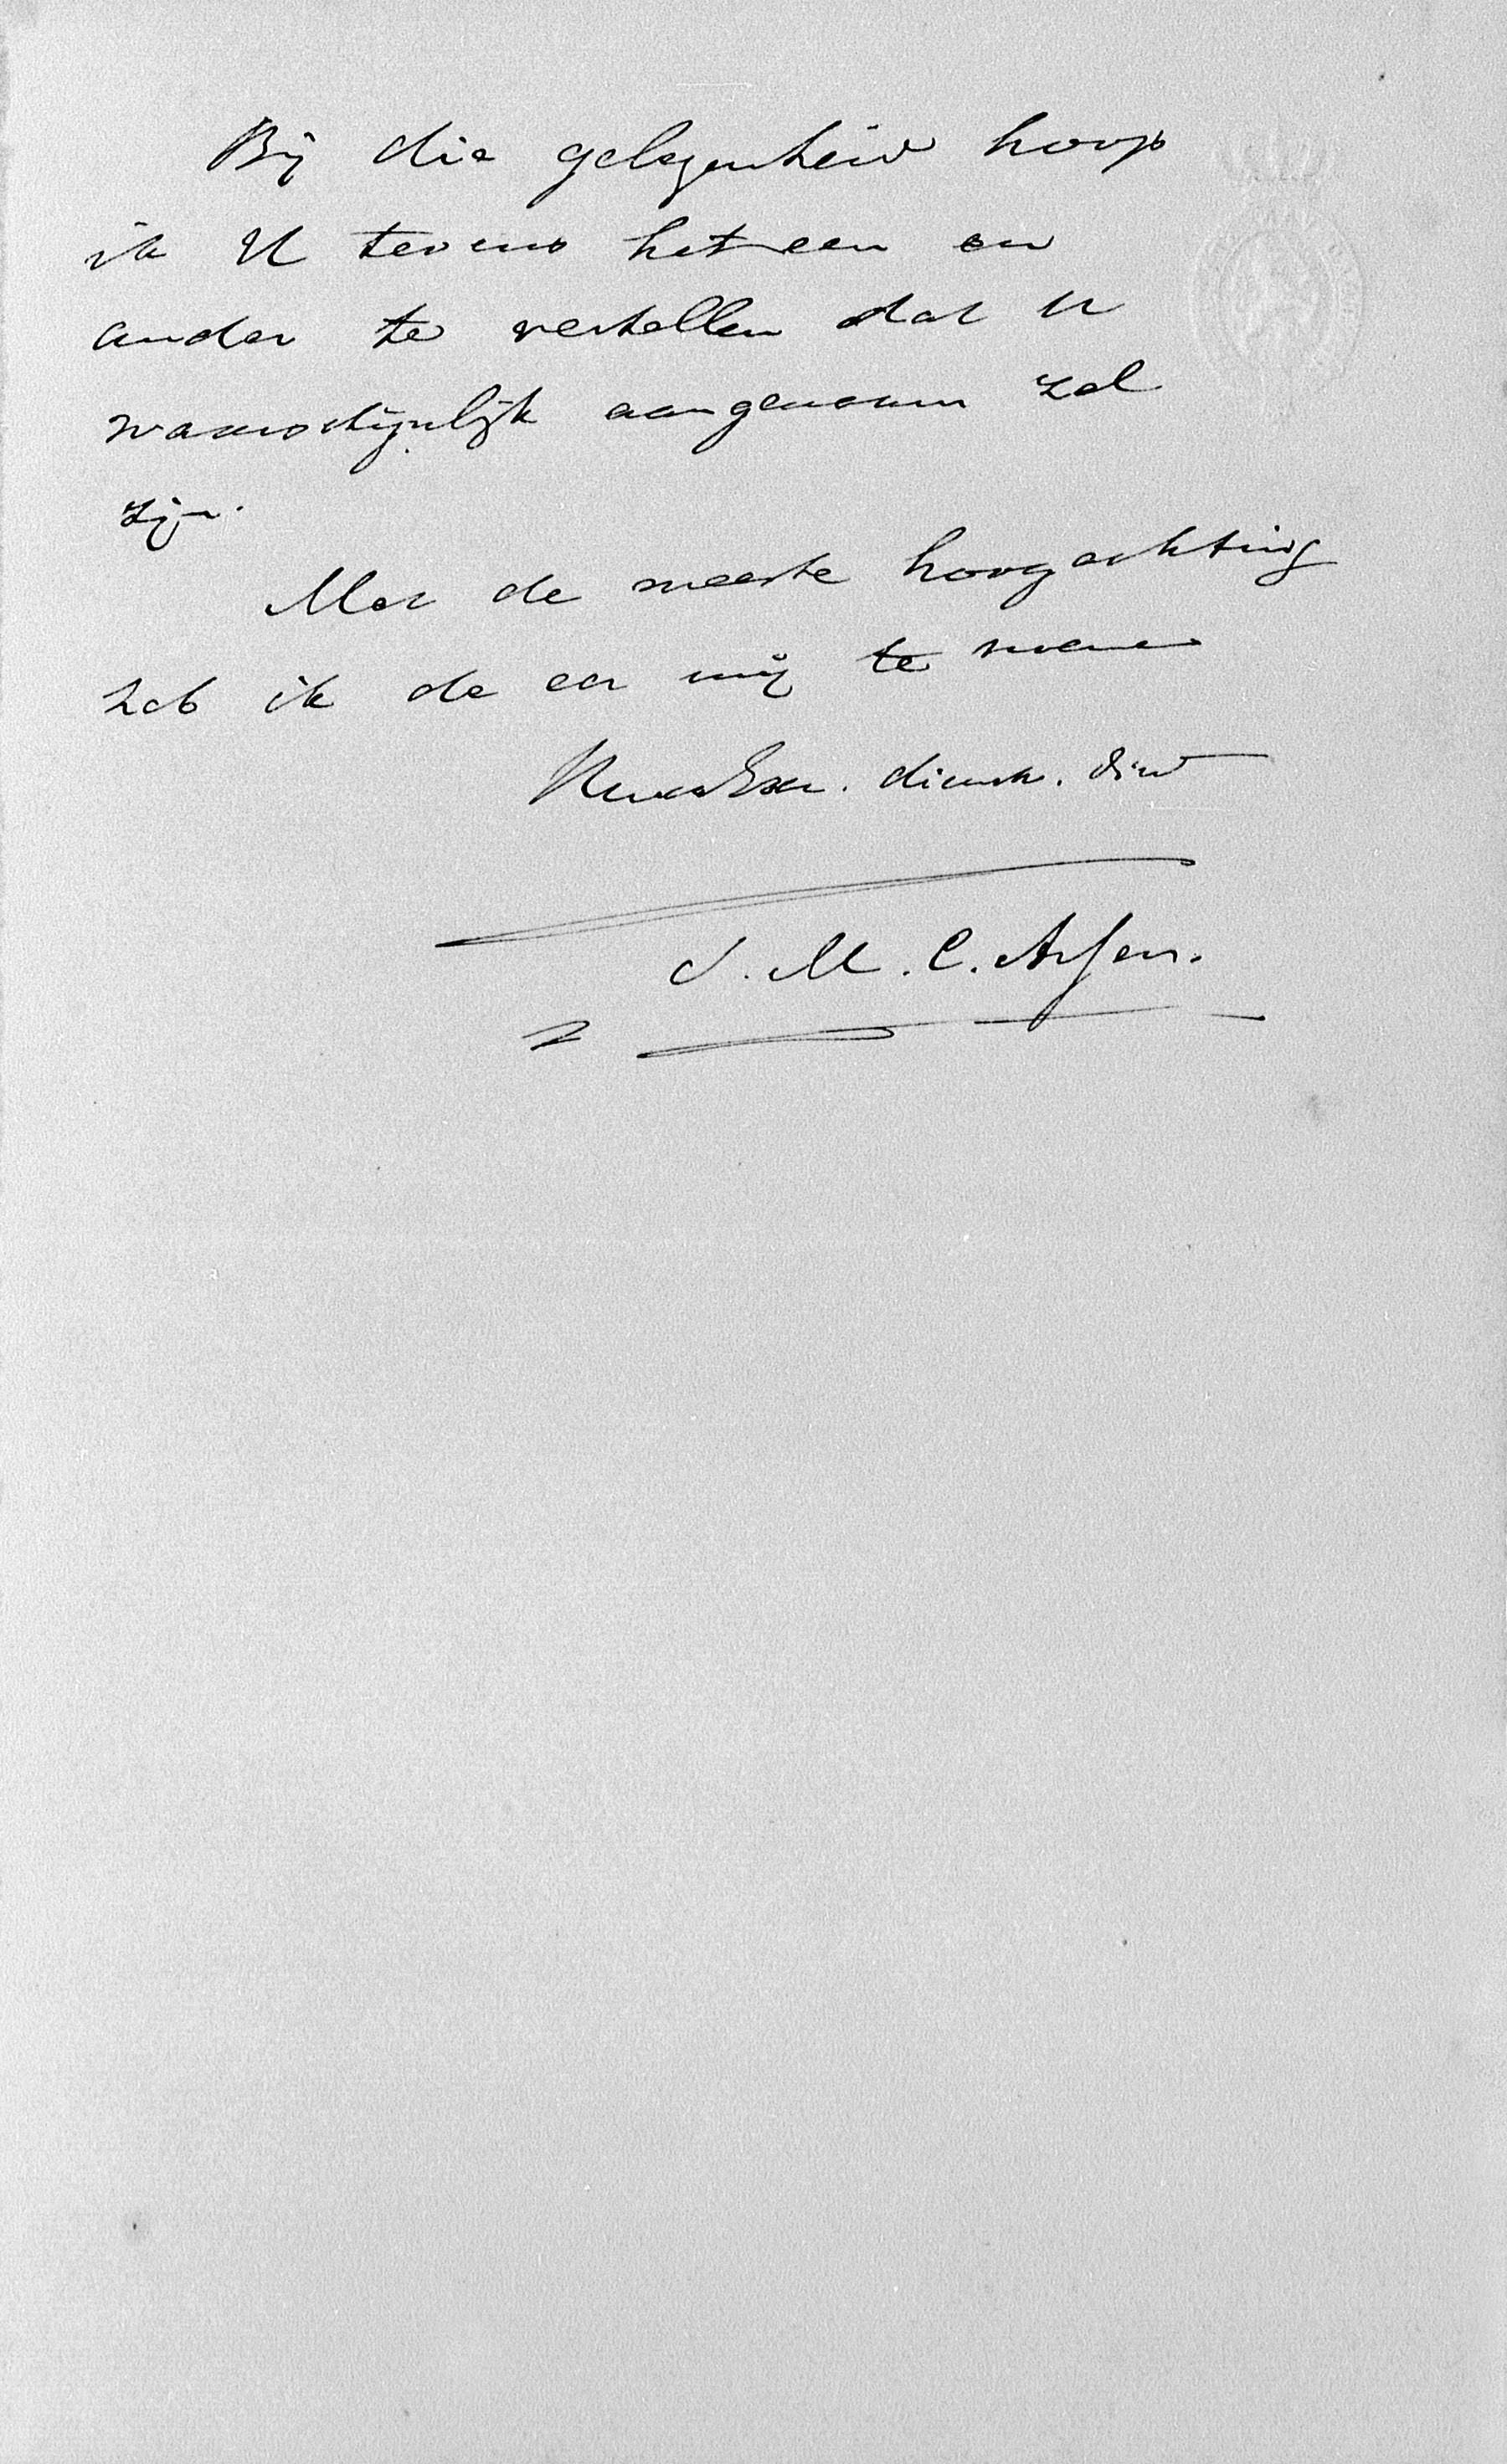 Bij die gelegenheid hoop
ik U tevens het een en
ander te vertellen dat U
waarschijnlijk aangenaam zal
zijn.
Met de meeste hoogachting
heb ik de eer mij te noemen
Uwe Exc. dienstw. dien
J. M. C.